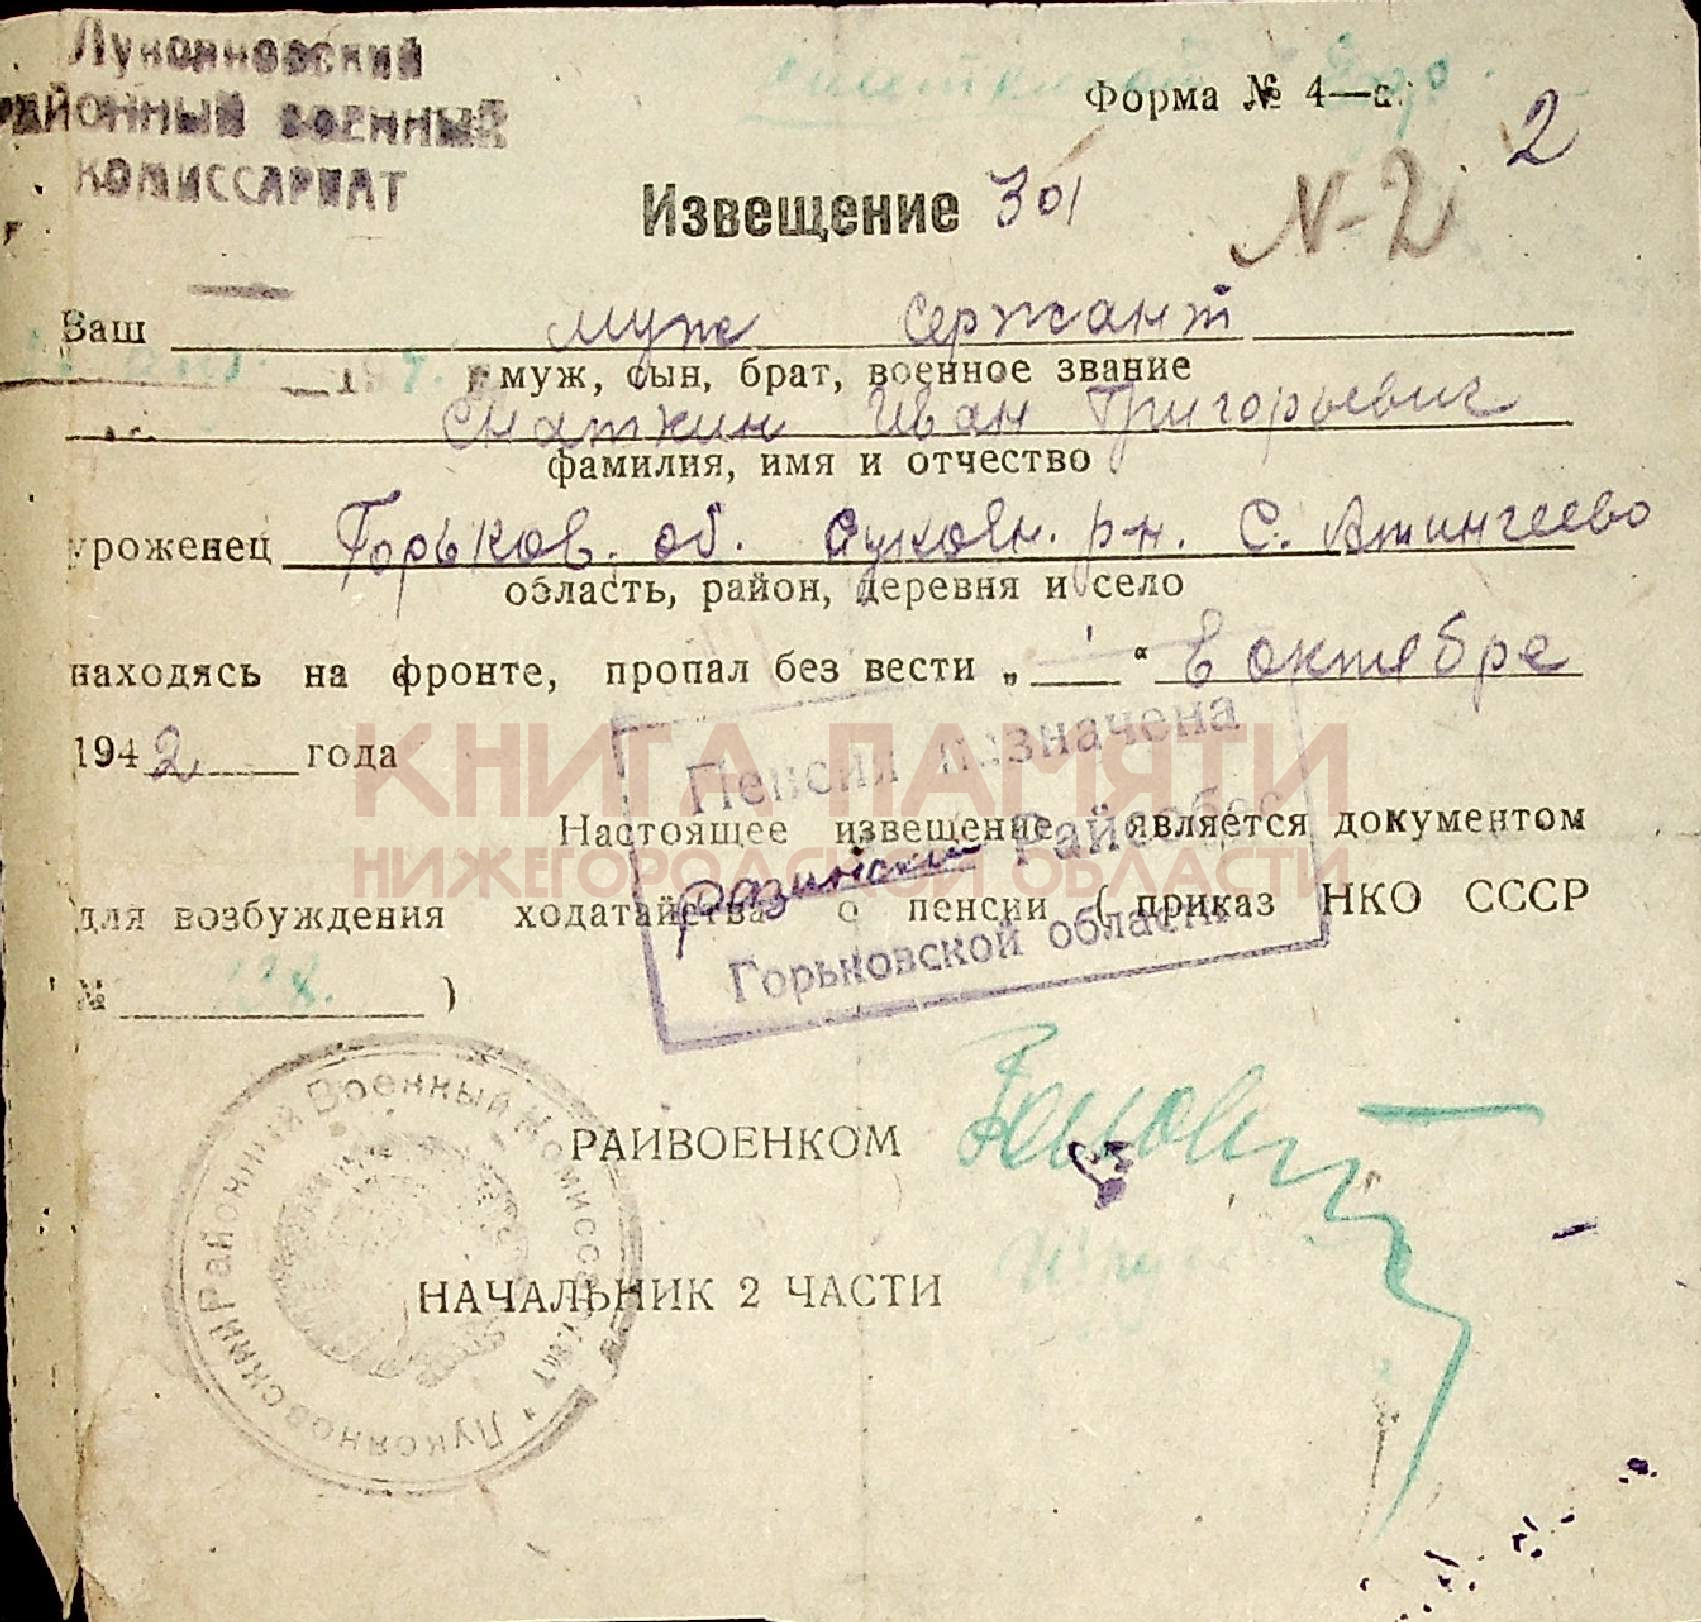 Лукояновский
РАЙОННЫЙ ВОЕННЫЙ
КОМИССАРИАТ
Форма № 4—а.
2
Извещение 301
N-2
Ваш муж сержант
муж, сын, брат, военное звание
194
Снаткин Иван Григорьевич
фамилия, имя и отчество
уроженец Горьков. об. Лукоян. р-н. С. Атингеево
область, район, деревня и село
находясь на фронте, пропал без вести „ “ в октябре
1942 года
КНИГА ПАМЯТИ
НИЖЕГОРОДСКОЙ ОБЛАСТИ
Пенсия назначена
Райсобес
Горьковской области
Настоящее извещение является документом
для возбуждения ходатайства о пенсии ( приказ НКО СССР
№ 138. )
РАЙВОЕНКОМ
НАЧАЛЬНИК 2 ЧАСТИ
Лукояновский Районный Военный Комиссариат